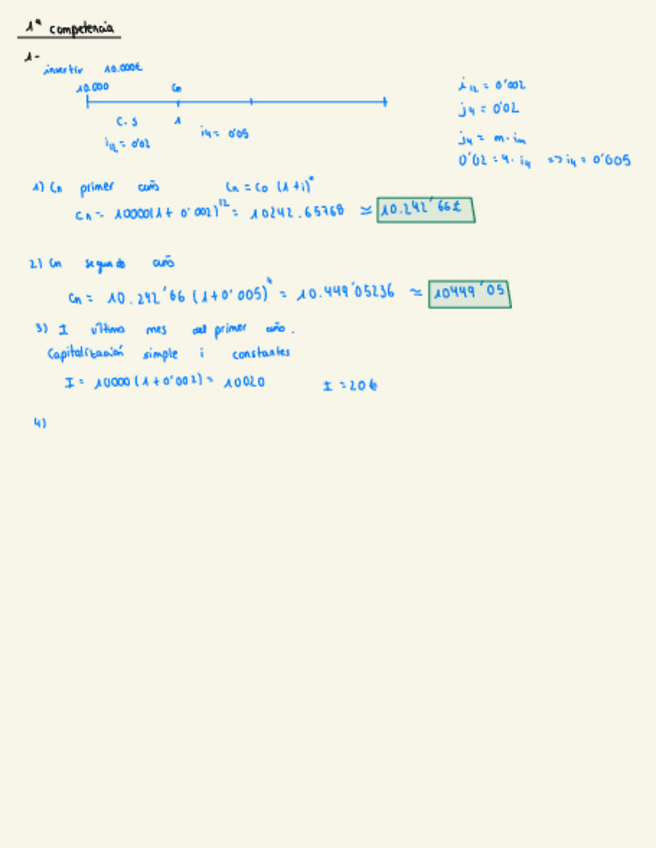 1ª competencia
1-
invertir 10.000€
10.000 Cn
C.S 1
i12 = 0'02 i4 = 0'05
i12 = 0'002
j4 = 0'02
j4 = m·im
0'02 = 4·i4 => i4 = 0'005
1) Cn primer año Cn = Co (1+i)^n
Cn = 10000(1+0'002)^12 = 10242.65768 ≃ 10.242'66€
2) Cn segundo año
Cn = 10.242'66 (1+0'005)^4 = 10.449'05236 ≃ 10449'05
3) I último mes del primer año.
Capitalización simple i constantes
I = 10000(1+0'002) = 10020 I = 20€
4)